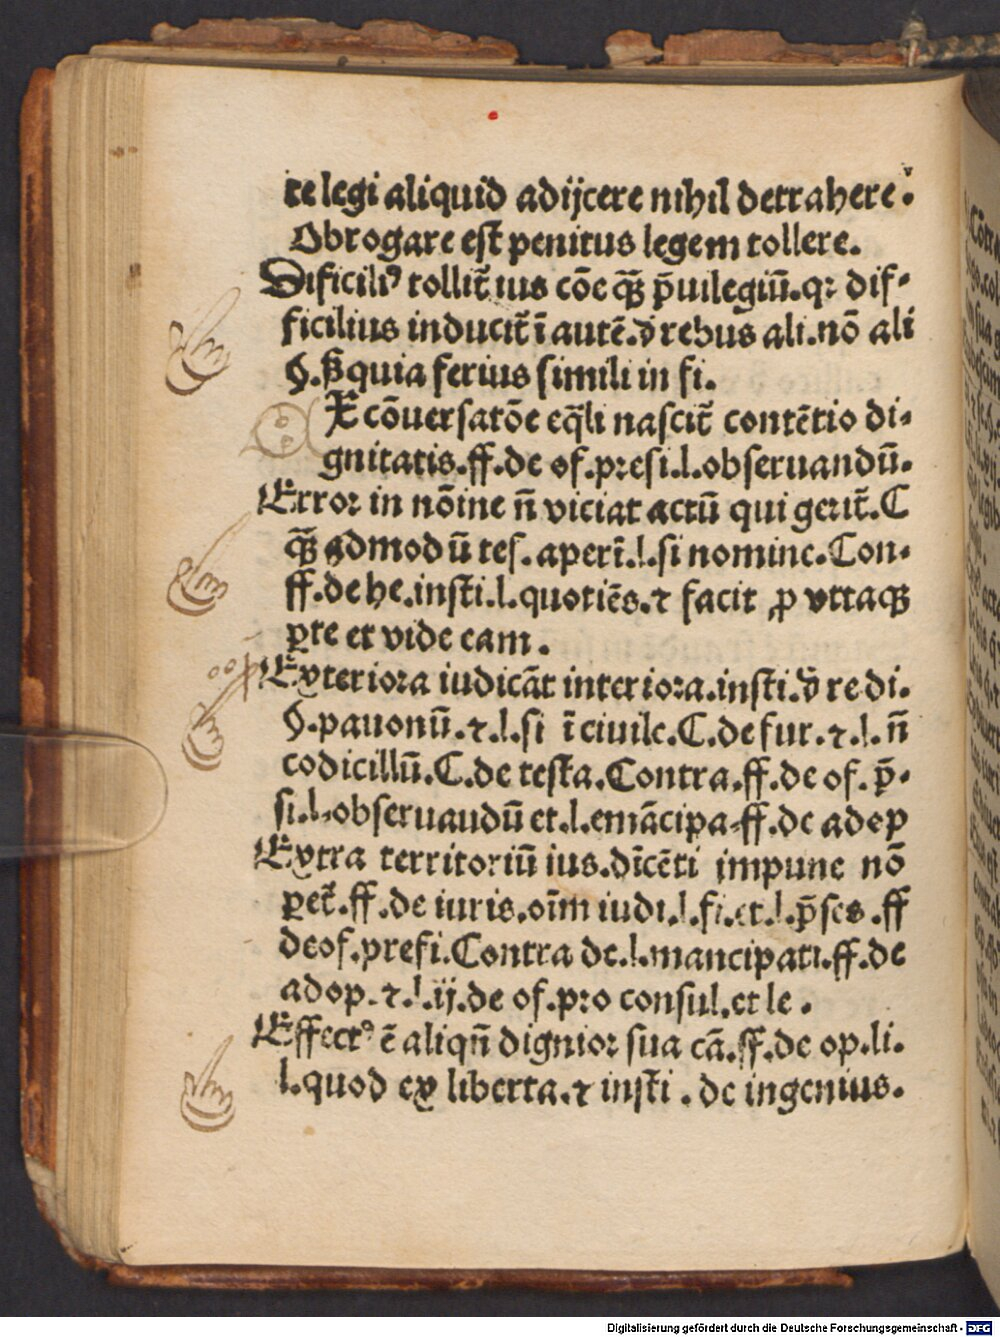 te legi aliquid adijcere nihil detrahere.
Obrogare est penitus legem tollere.
Dificiliꝰ tollit᷑ ius cōe qꝫ̄ p̄uilegiū.qꝛ dif⸗
ficilius inducit᷑ ī autē.d̄ rebus ali.nō ali
§.s̄ quia ferius simili in fi.
Ex cōuersatōe eq̄li nascit᷑ contētio di⸗
gnitatis.ff.de of.presi.l.obseruandū.
Error in nōine n̄ viciat actū qui gerit᷑.C
qꝫ̄ admodū tes.aperī.l.si nomine.Con⸗
ff.de he.insti.l.quotiēs.⁊ facit ꝓ vttaqꝫ
ꝑte et vide eam.
Exteriora iudicāt interiora.insti.d̄ re di.
§.pauonū.⁊.l.si ī ciuile.C.de fur.⁊.l.n̄
codicillū.C.de testa.Contra.ff.de of.p̄⸗
si.l.obseruaudū et.l.emācipa⸗ff.de adop
Extra territoriū ius.dicēti impune nō
ꝑet᷑.ff.de iuris.oīm iudi.l.fi.et.l.p̄ses.ff
deof.presi.Contra de.l.mancipati.ff.de
adop.⁊.l.ij.de of.pro consul.et le.
Effectꝰ ē aliqn̄ dignior sua cā.ff.de op.li.
l.quod ex liberta.⁊ insti.de ingenius.
Digitalisierung gefördert durch die Deutsche Forschungsgemeinschaft - DFG